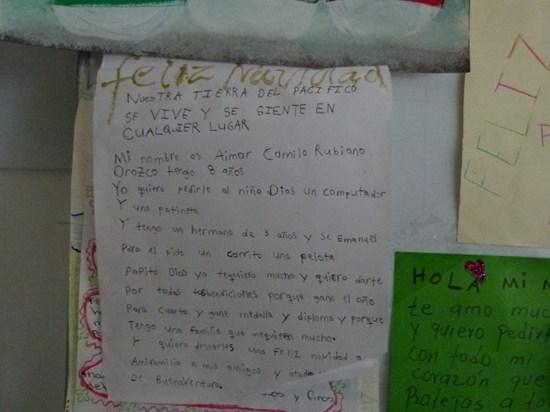 feliz Navidad
NuesTRA TIERRA DEL PACIFICO
SE VIVE Y SE SIENTE EN
CUALQUIER LUGAR
Mi nombre es Aimar Camilo Rubiano
Orozco tengo 8 años
Yo quiero pedirle al niño Dios un computador
Y una patineta
Y tengo un hermano de 3 años y Se Emanuel
Para el pido un carrito una pelota
Papito Dios yo tequiero mucho y quiero darte
Por todas bendiciones porque gane el año
Para cuarto y gane medalla y diploma y porque
Tengo una familia que mequiere mucho
Y quiero desearles una FELIZ navidad a
Amifamilia a mis amigos y
DE BuenaVentura
y Cinco
FELIZ
HOLA MI
te amo muc
y quiero Pedir
con todo mi
corazón que
Protejas a to